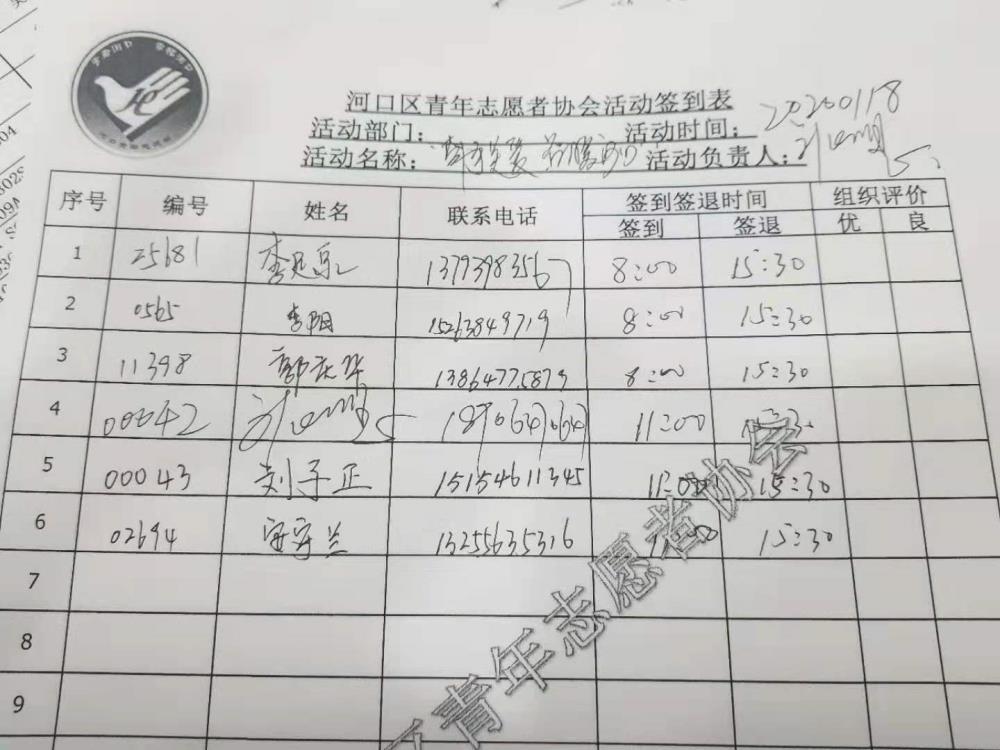 河口区青年志愿者协会活动签到表
活动部门： 活动时间：20200118
活动名称： 活动负责人：
序号 编号 姓名 联系电话 签到签退时间 组织评价
签到 签退 优 良
1 25681 13793983567 8:00 15:30
2 0565 李阳 15263849719 8:00 15:30
3 11398 郭庆华 13864775879 8:00 15:30
4 00042 11:00 15:30
5 00043 刘子正 15154611345 11:00 15:30
6 02694 13255635316 15:30
7
8
9
区青年志愿者协会